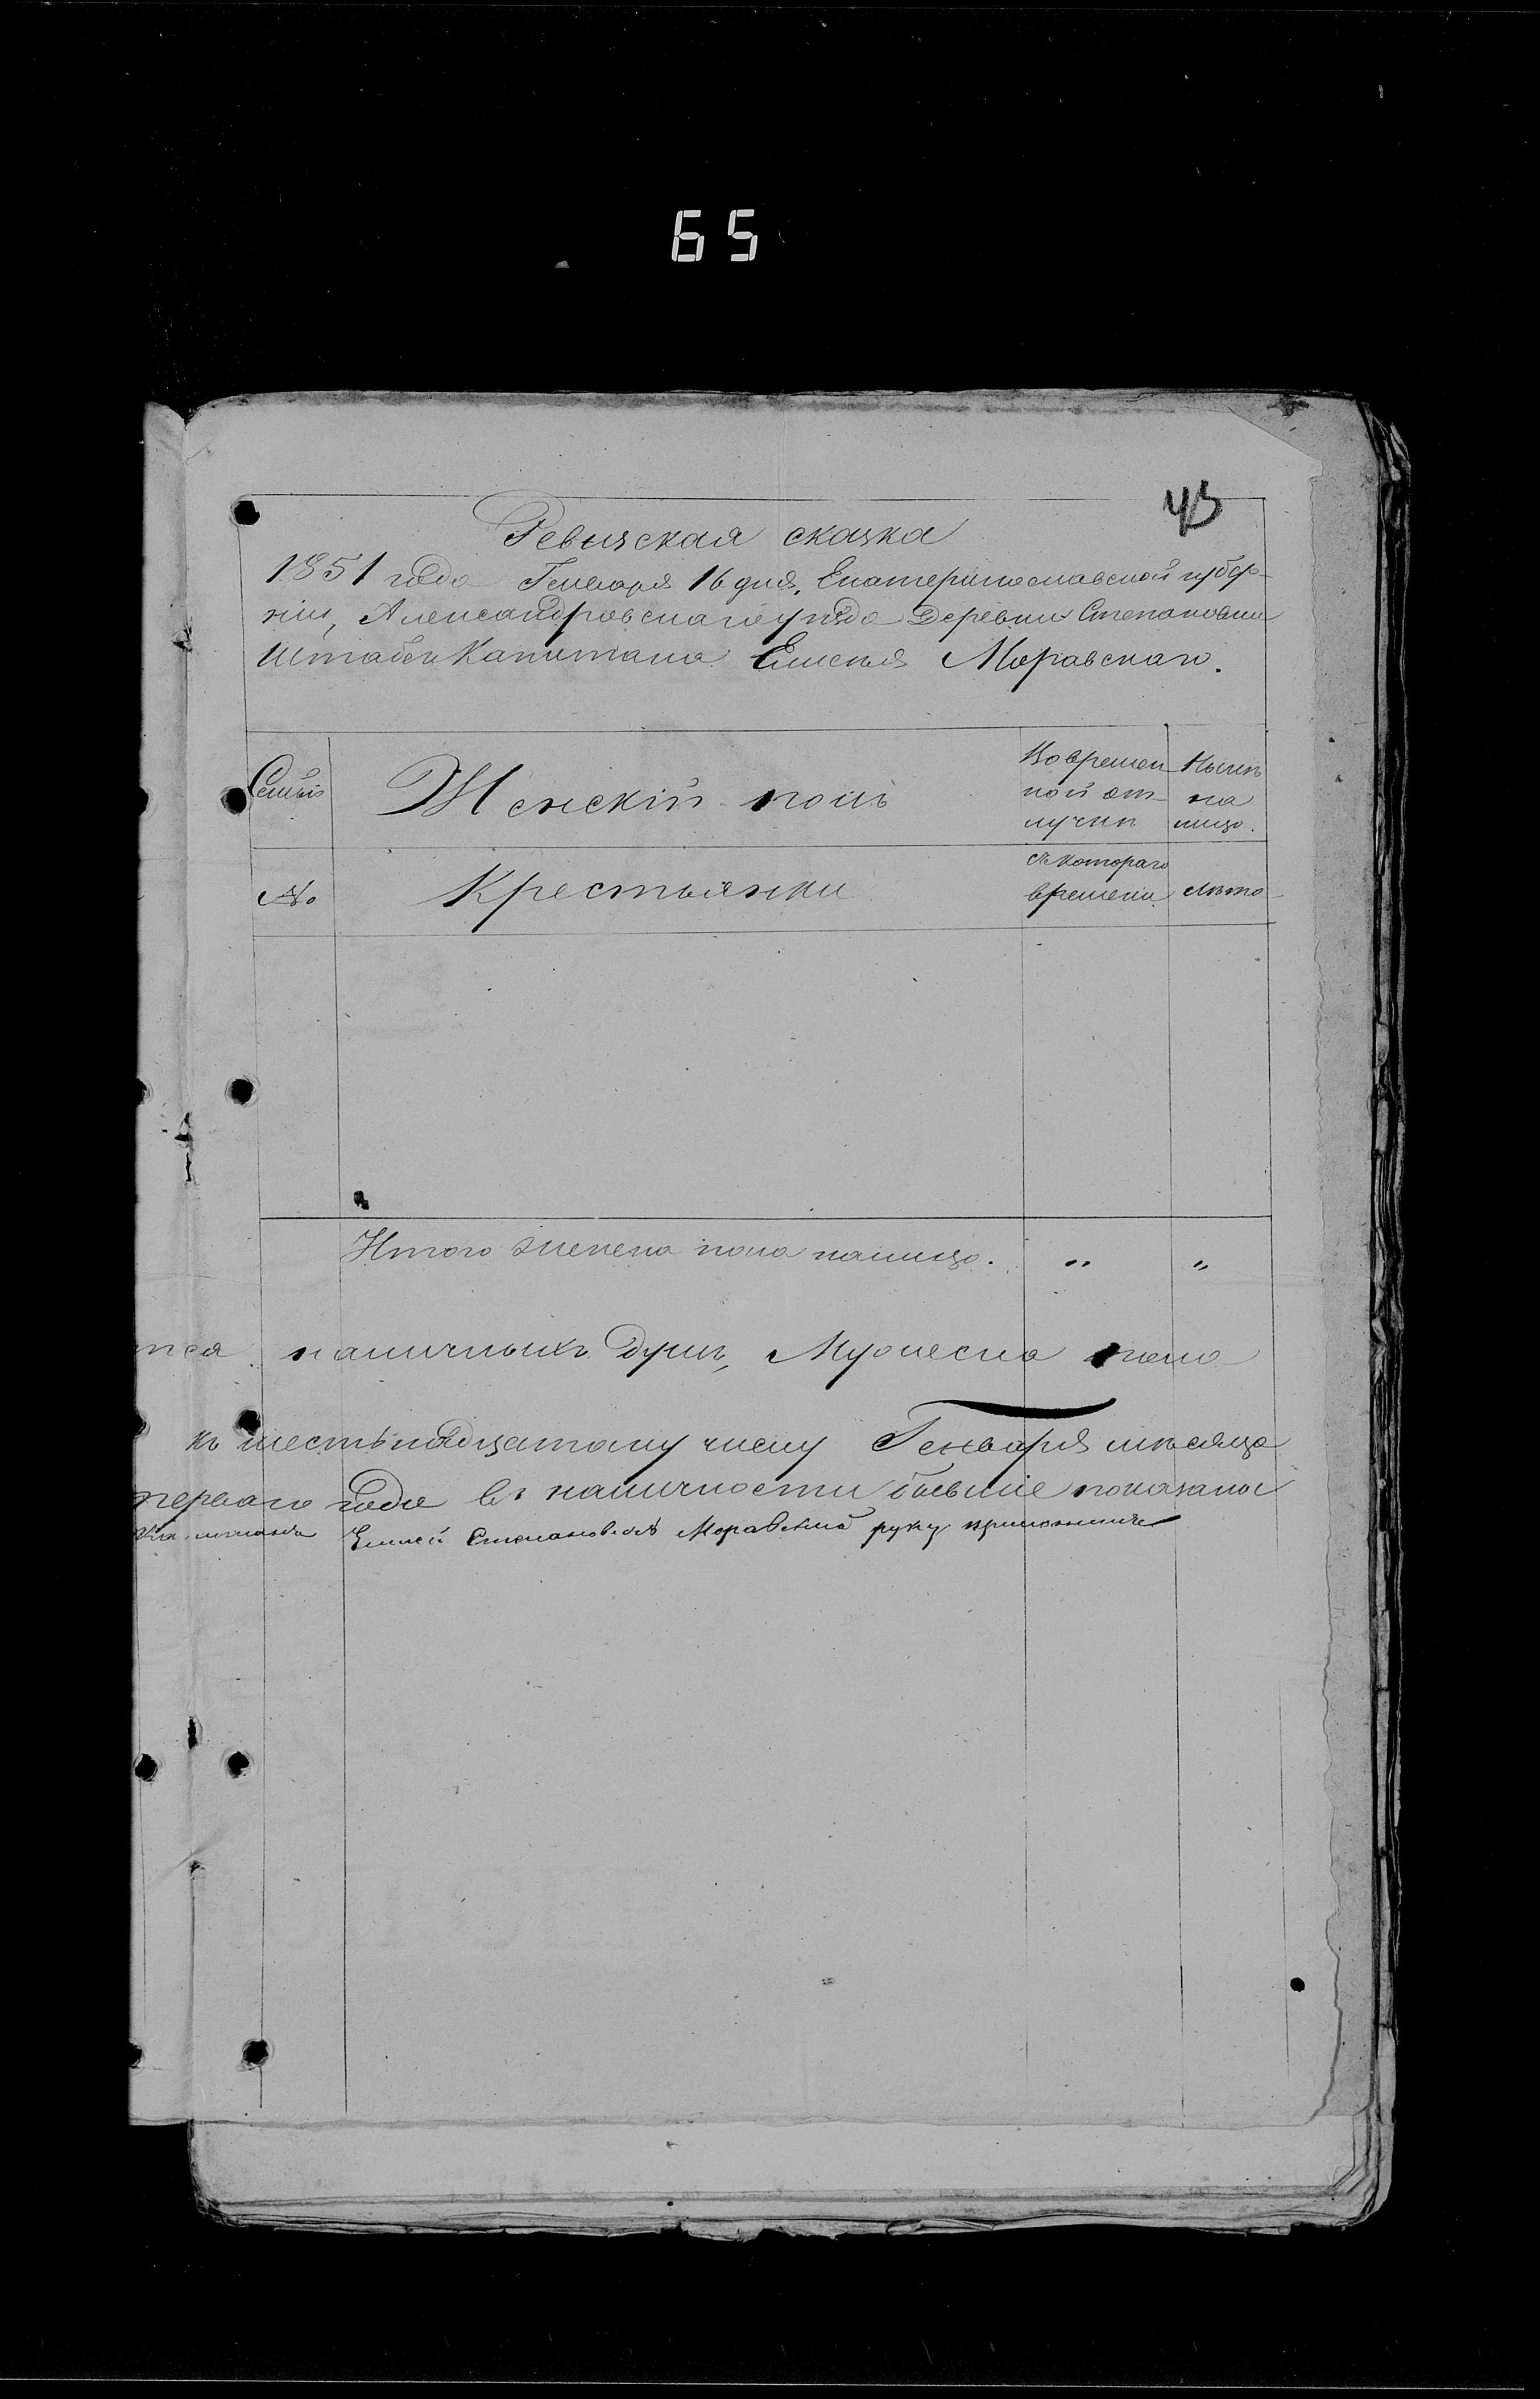 65
43
Ревизская сказка
1851 года Генваря 16 дня, Екатеринославской губер-
ніи, Александровскаго уѣзда Деревни Степановки
Штабсъ Капитана Елисея Моравскаго.
Семьи
Женскій полъ
Во времен
ной от
лучкѣ
Нынѣ
на
лицо.
№
Крестьянки
съ котораго
времени
лѣта
Итого женска пола налицо. " "
тся наличныхъ душъ, Мужеска пола
къ шестьнадцатому числу Генваря мѣсяца
перваго года въ наличности бывшіе показаны
Елисей Степановъ Моравскій руку приложилъ